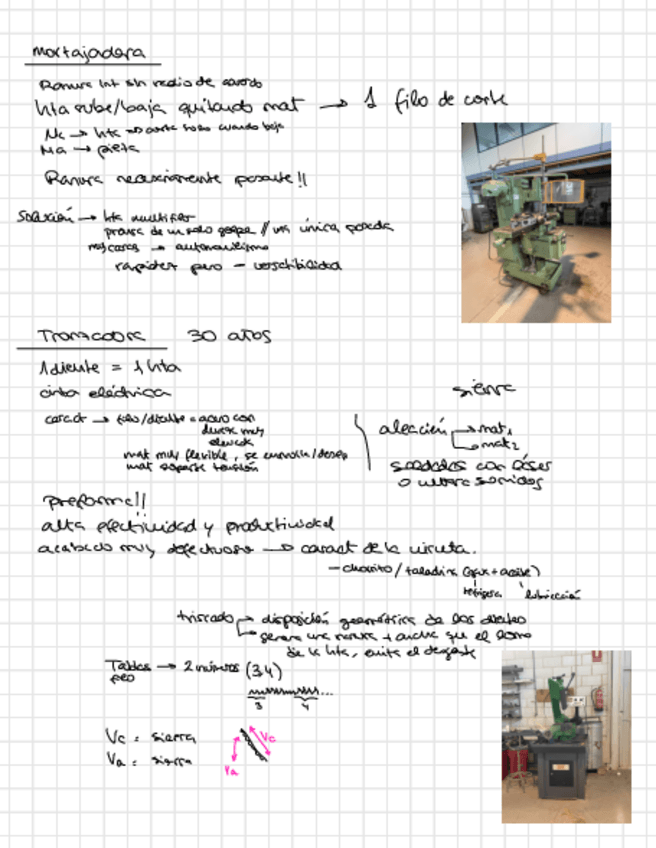 mortajadora
Ranura int sin radio de acordo
hta sube/baja quitando mat → 1 filo de corte
Mc → hta → corte solo cuando baja
Ma → pieza
Ranura necesariamente pasante!!
Solución → hta multifilo
provee de un solo golpe // una única pasada
→ automovilismo
rapidez pero - versatilidad
Tronzadora 30 años
1 diente = 1 hta
cinta eléctrica
sierra
→ filo/diente = acero con
dureza muy
elevada
mat muy flexible, se enrolla/desen
mat soporta tensión
aleación → mat1
→ mat2
soldados con láser
o ultra sonidos
preforma!!
alta efectividad y productividad
acabado muy defectuoso → caract de la viruta.
- chorrito / taladrina (agua + aceite)
refrigera lubricación
triscado → disposición geométrica de los dientes
→ genera una ranura + ancha que el lomo
de la hta, evita el desgaste
Tablas → 2 números (3,4)
paso
3 4
Vc = sierra
Va = sierra
Vc
Va